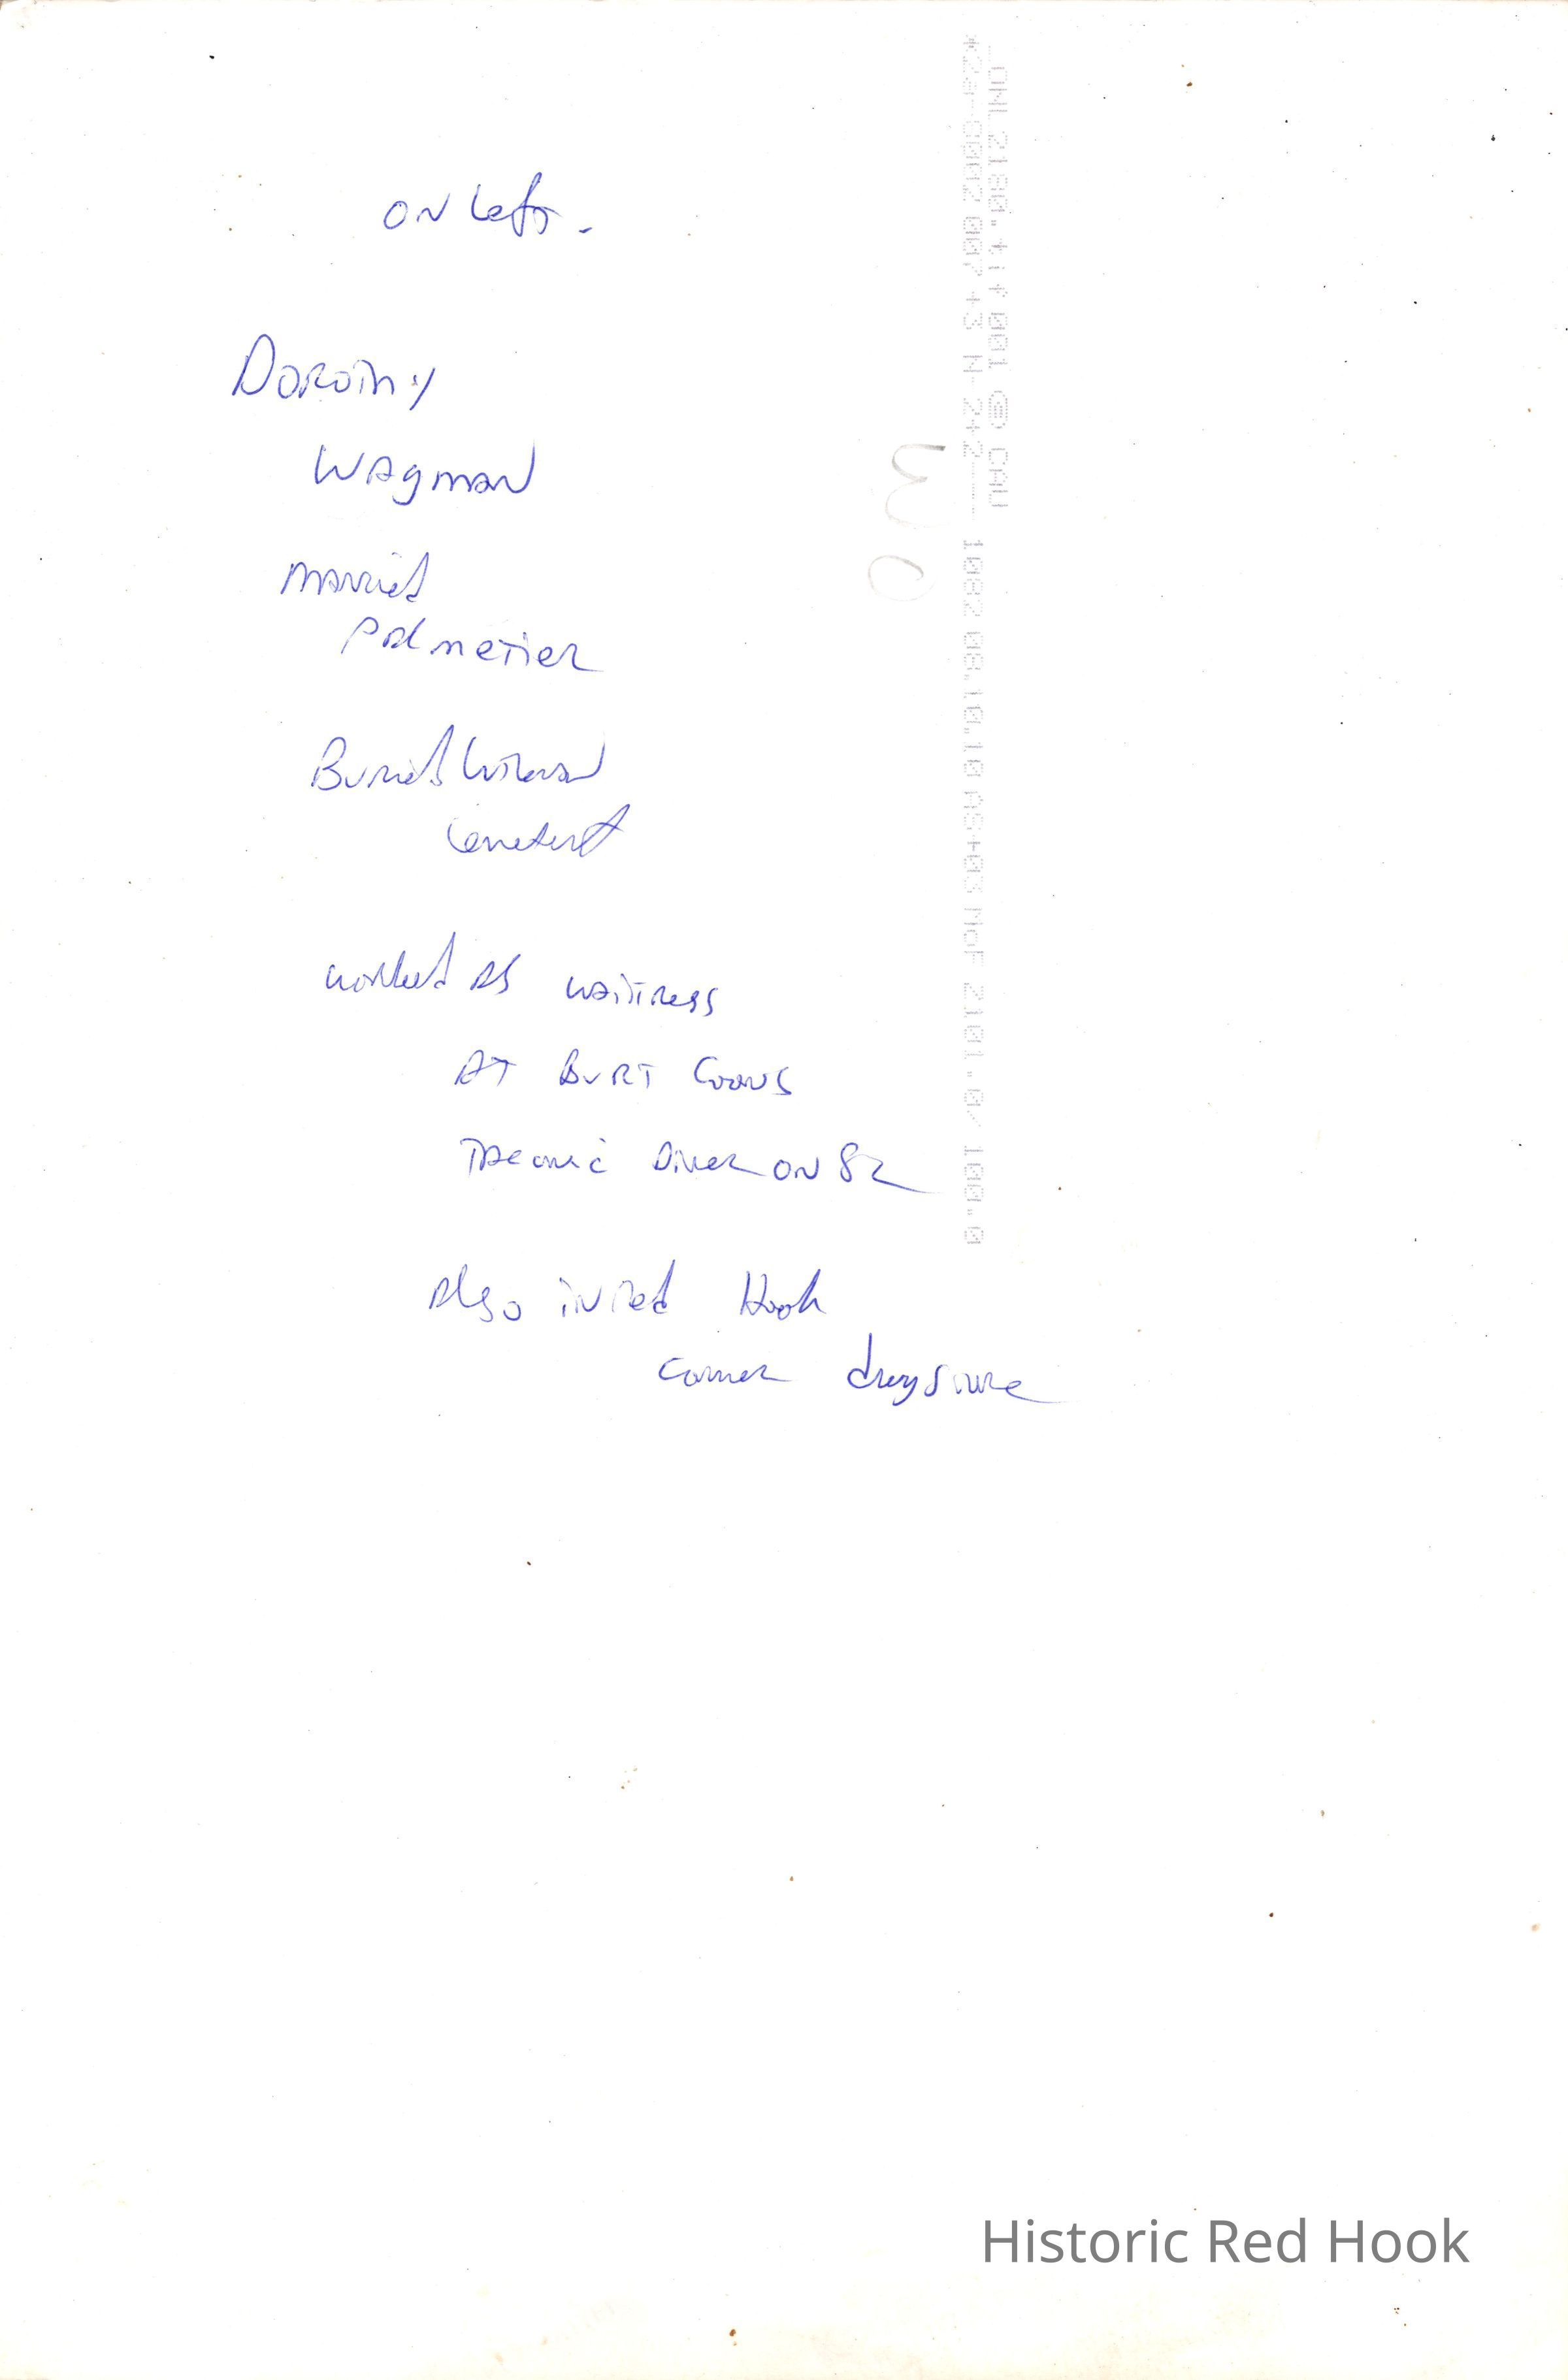 ON Left -
Dorothy
Wagman
Married
Palmetier
Buried Lutheran
Cemetery
worked AS waitress
AT BURT COONS
Taconic Diner ON 82
Also in Red Hook
corner drugstore
30
Historic Red Hook